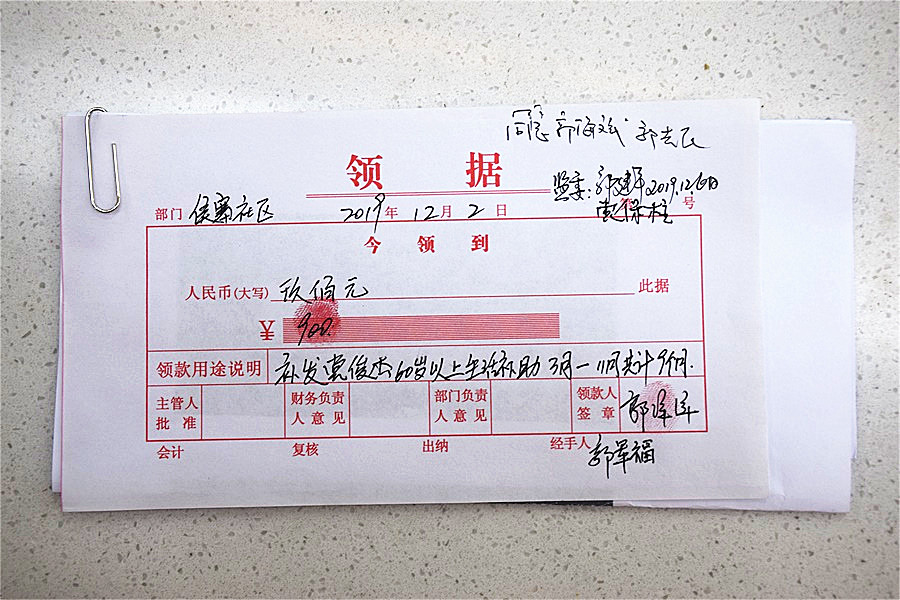 同意 郭海斌 郭志民
领 据
监委：郭建军 2019.12.6日
部门 侯寨社区 2019年 12月 2日 号
党保柱
今领到
人民币(大写) 玖佰元 此据
¥ 900.
领款用途说明 补发党俊杰60岁以上生活补助 3月-11月共计9个月.
主管人批准 财务负责人意见 部门负责人意见 领款人签章
会计 复核 出纳 经手人 郭军福